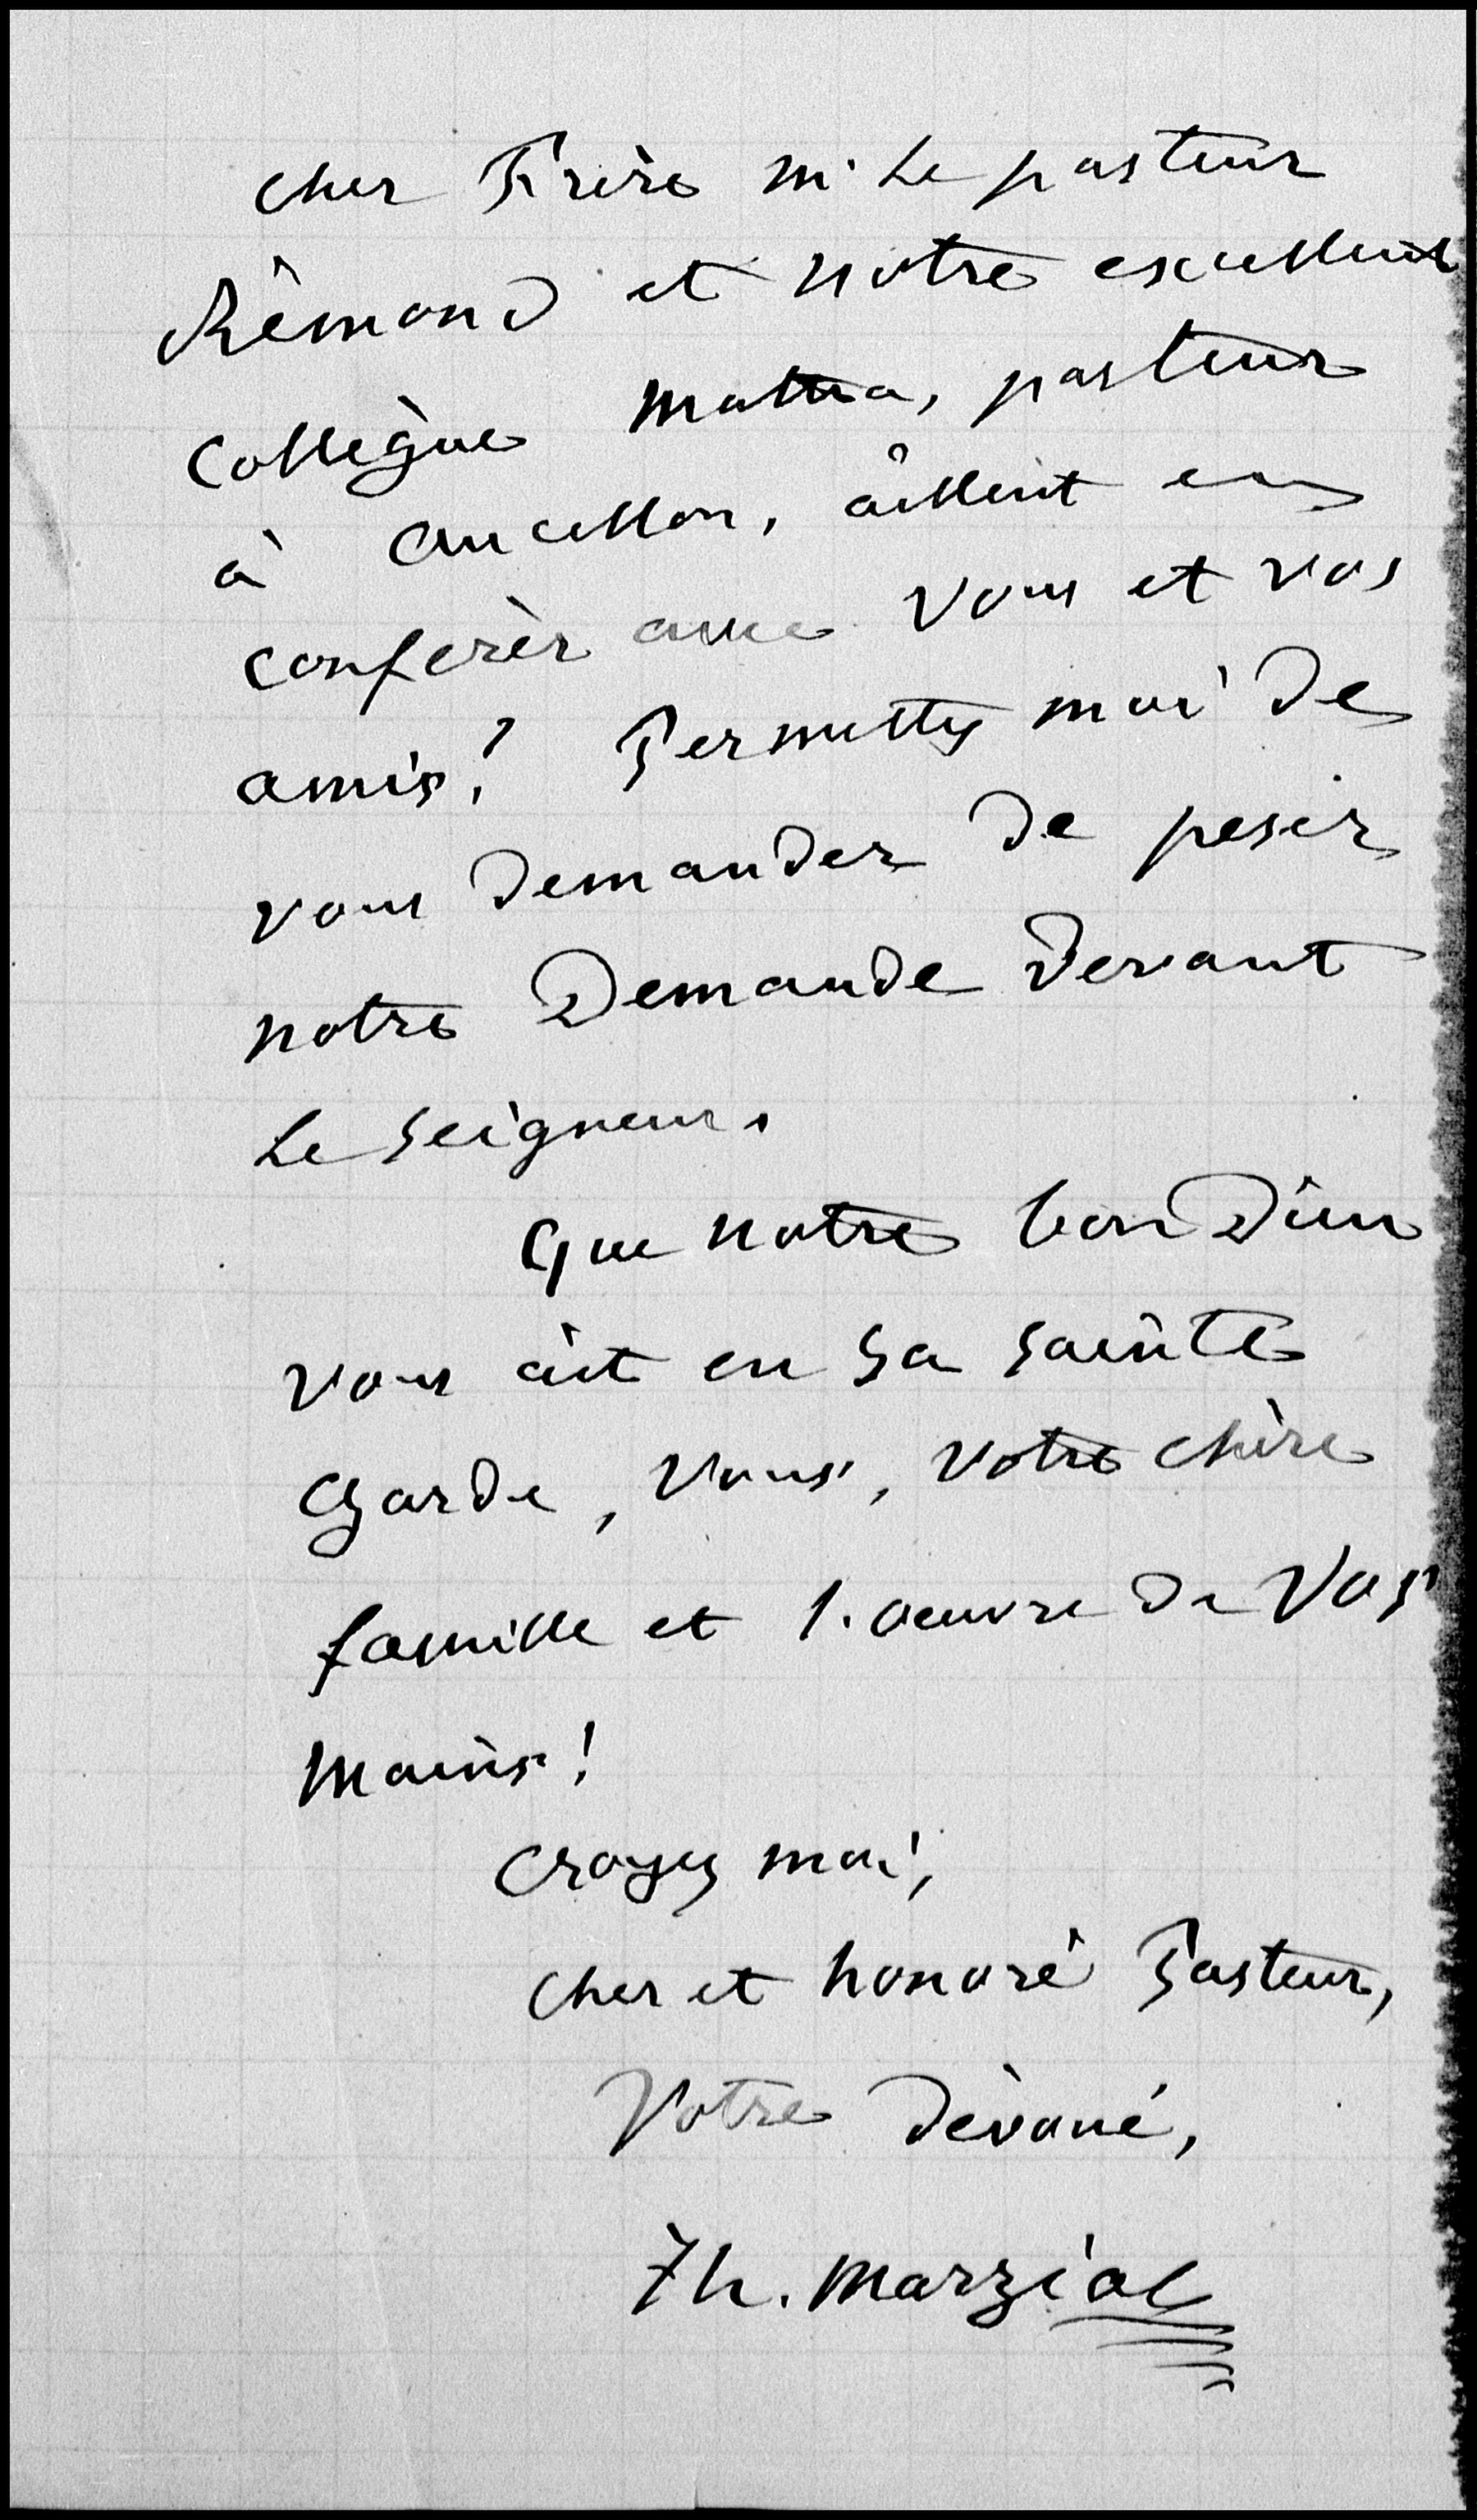 cher Frère m. le pasteur
Rémond et notre excellent
collègue Mattia, pasteur
à , aillent en
conférer avec vous et vos
amis? Permettez moi de
vous demander de peser
notre Demande devant
le Seigneur.
Que notre bon Dieu
vous ait en sa sainte
garde, vous, votre chère
famille et l'oeuvre de vos
mains!
Croyez moi,
cher et honoré Pasteur,
Votre dévoué,
Th. Marzial